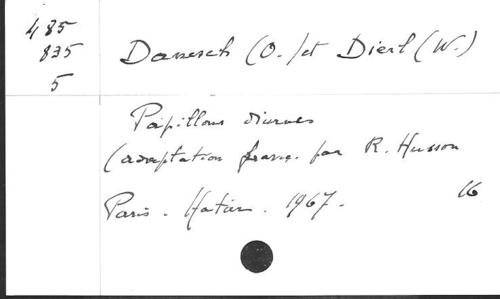 485
835
5
Danesch (O.) et Dierl (W.)
Papillons diurnes
(adaptation franç. par R. Husson
Paris. Hatier. 1967.
16